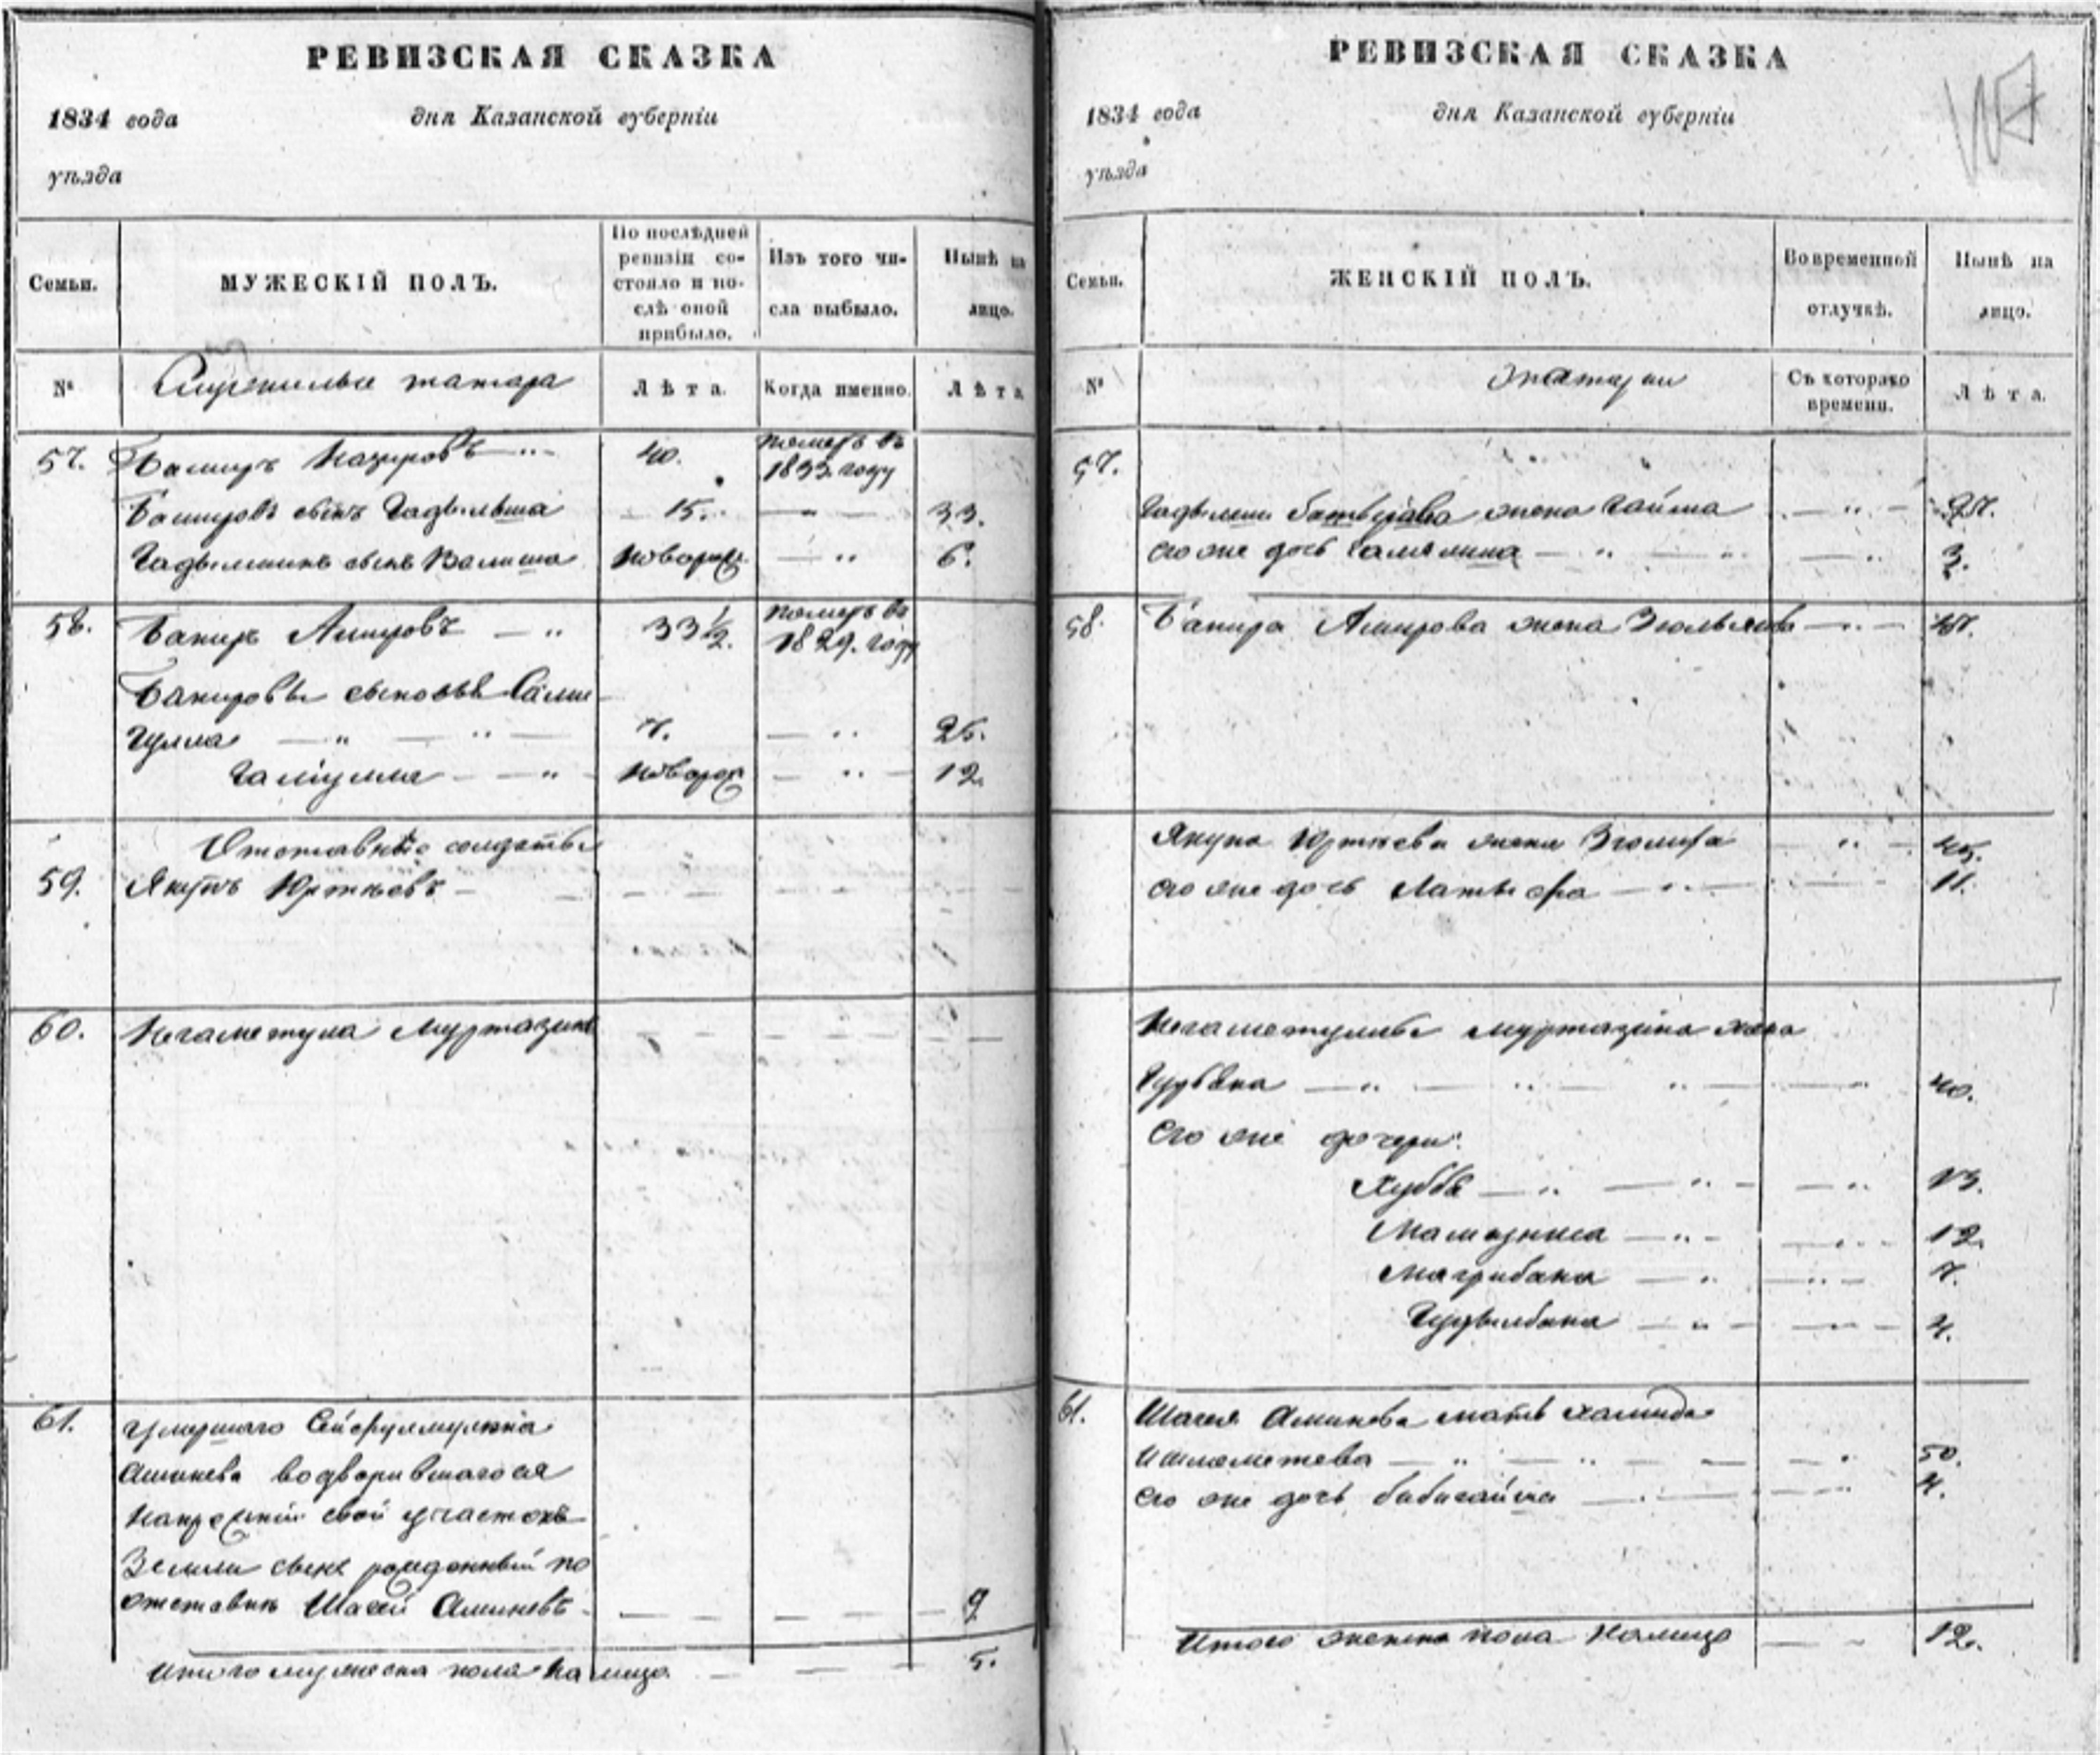 РЕВИЗСКАЯ СКАЗКА
1834 года дня Казанской губерніи
уѣзда
Семьи.
МУЖЕСКІЙ ПОЛЪ.
По послѣдней ревизіи состояло и послѣ оной прибыло.
Изъ того числа выбыло.
Нынѣ на лицо.
№
татара
Лѣта.
Когда именно.
Лѣта
57. Баширъ Назировъ 40. померъ въ 1833 году
Башировъ сынъ Гадыльша 15. 33.
сынъ Валиша новорож 6.
58. Бакиръ Амировъ 33 1/2. померъ въ 1829. году
Бакировы сыновья Сами
гулла 7. 25.
Галиулла новорож 12.
Отставные солдаты
59. Якупъ Юртѣевъ
60. Негаметула Муртазинъ
61. умершаго
Аминева водворившагося
на прежній свой участокъ
Земли сынъ рожденный по
отставкѣ Шагей Аминевъ 9
Итого мужеска пола на лицо 5.
РЕВИЗСКАЯ СКАЗКА
1834 года дня Казанской губерніи
уѣзда
Семьи.
ЖЕНСКІЙ ПОЛЪ.
Во временной отлучкѣ.
Нынѣ на лицо.
№
татарки
Съ котораго времени.
Лѣта.
57.
жена Гайша 27.
его же дочь 3.
58. Бакира Амирова жена 47.
Якупа Юртѣева жена 45.
его же дочь Латыфа 11.
Негаметуллы Муртазина жена
40.
его же дочери:
Хубба 13.
12.
Магрибана 7.
4.
61. Шагея Аминева мать Халида
Ишмаметева 50.
его же дочь Бибигайша 4.
Итого женска пола на лицо 12.